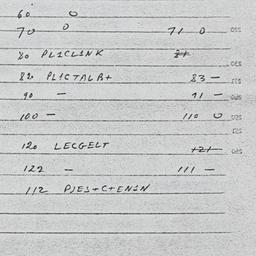 60 0
70 0 71 0
80 PL1CL1NK 81
82 PL1CTALB+ 83 -
90 - 91 -
100 - 110 0
120 LECGELT 121
122 - 111 -
112 PJES+C+EN1N